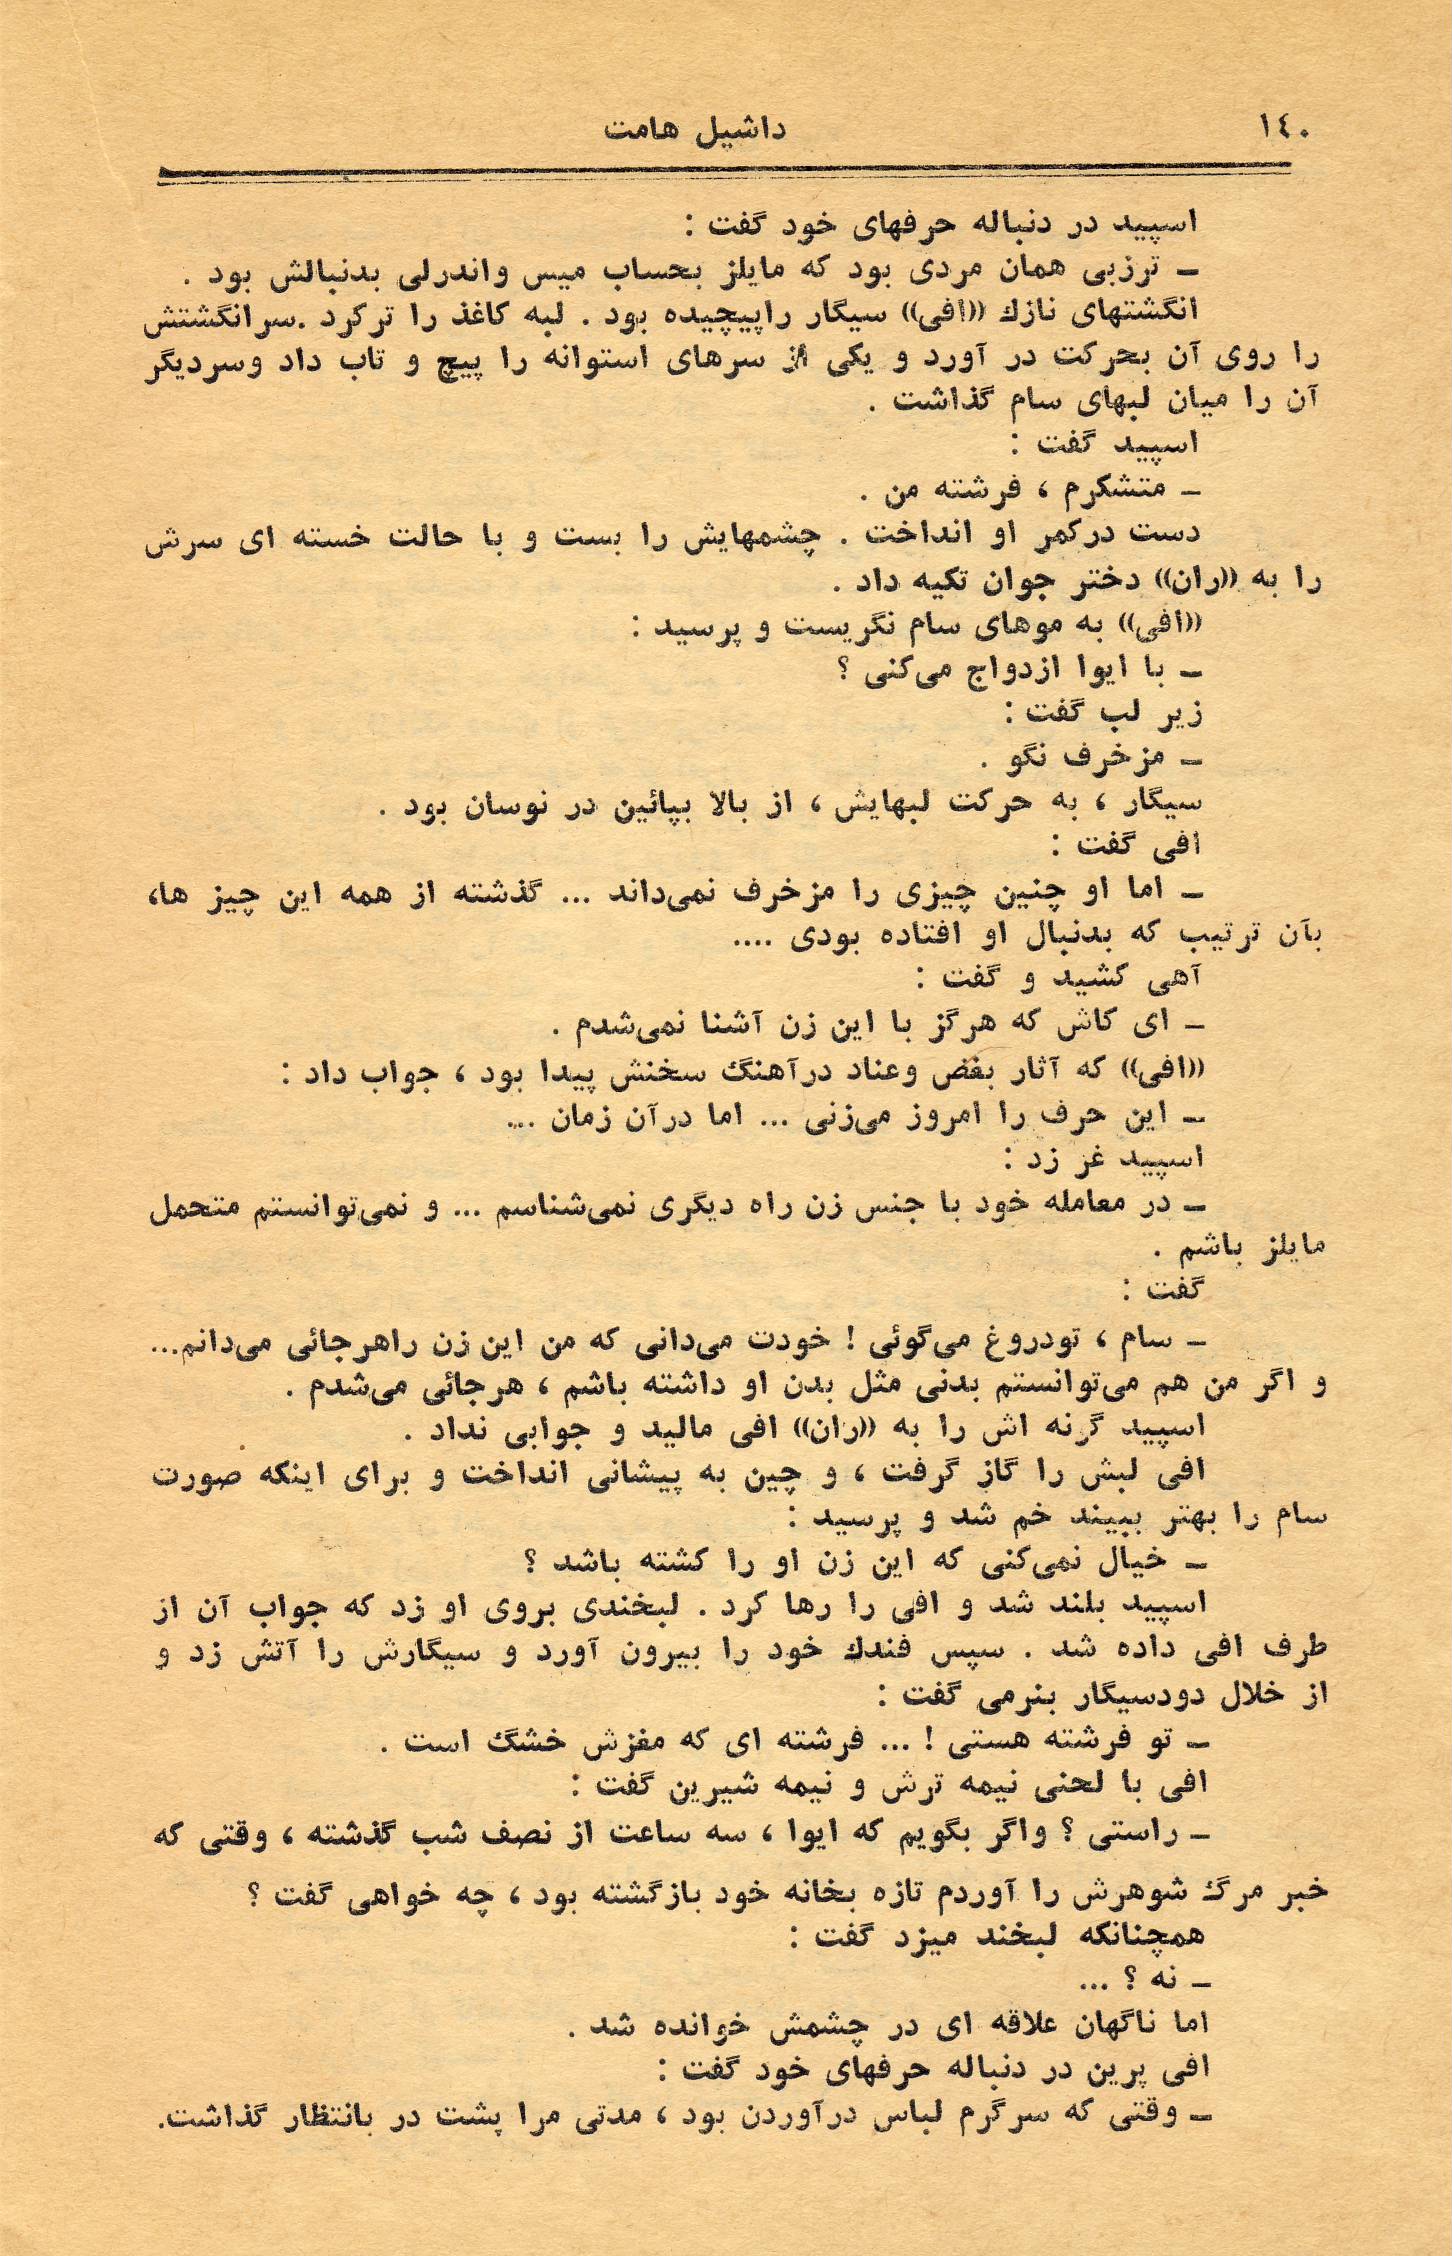 ۱٤۰
داشیل هامت
اسپید در دنباله حرفهای خود گفت :
ــ ترزبی همان مردی بود که مایلز بحساب میس واندرلی بدنبالش بود .
انگشتهای نازك ((افی)) سیگار راپیچیده بود . لبه کاغذ را ترکرد .سرانگشتش
را روی آن بحرکت در آورد و یکی از سرهای استوانه را پیچ و تاب داد وسردیگر
آن را میان لبهای سام گذاشت .
اسپید گفت :
ــ متشکرم ، فرشته من .
دست درکمر او انداخت . چشمهایش را بست و با حالت خسته ای سرش
را به ((ران)) دختر جوان تکیه داد .
((افی)) به موهای سام نگریست و پرسید :
ــ با ایوا ازدواج می‌کنی ؟
زیر لب گفت :
ــ مزخرف نگو .
سیگار ، به حرکت لبهایش ، از بالا بپائین در نوسان بود .
افی گفت :
ــ اما او چنین چیزی را مزخرف نمی‌داند ... گذشته از همه این چیز ها،
بآن ترتیب که بدنبال او افتاده بودی ....
آهی کشید و گفت :
ــ ای کاش که هرگز با این زن آشنا نمی‌شدم .
((افی)) که آثار بغض وعناد درآهنگ سخنش پیدا بود ، جواب داد :
ــ این حرف را امروز می‌زنی ... اما درآن زمان ...
اسپید غر زد :
ــ در معامله خود با جنس زن راه دیگری نمی‌شناسم ... و نمی‌توانستم متحمل
مایلز باشم .
گفت :
ــ سام ، تودروغ می‌گوئی ! خودت می‌دانی که من این زن راهرجائی می‌دانم...
و اگر من هم می‌توانستم بدنی مثل بدن او داشته باشم ، هرجائی می‌شدم .
اسپید گونه اش را به ((ران)) افی مالید و جوابی نداد .
افی لبش را گاز گرفت ، و چین به پیشانی انداخت و برای اینکه صورت
سام را بهتر ببیند خم شد و پرسید :
ــ خیال نمی‌کنی که این زن او را کشته باشد ؟
اسپید بلند شد و افی را رها کرد . لبخندی بروی او زد که جواب آن از
طرف افی داده شد . سپس فندك خود را بیرون آورد و سیگارش را آتش زد و
از خلال دودسیگار بنرمی گفت :
ــ تو فرشته هستی ! ... فرشته ای که مغزش خشگ است .
افی با لحنی نیمه ترش و نیمه شیرین گفت :
ــ راستی ؟ واگر بگویم که ایوا ، سه ساعت از نصف شب گذشته ، وقتی که
خبر مرگ شوهرش را آوردم تازه بخانه خود بازگشته بود ، چه خواهی گفت ؟
همچنانکه لبخند میزد گفت :
ــ نه ؟ ...
اما ناگهان علاقه ای در چشمش خوانده شد .
افی پرین در دنباله حرفهای خود گفت :
ــ وقتی که سرگرم لباس درآوردن بود ، مدتی مرا پشت در بانتظار گذاشت.